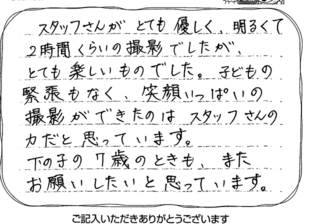 スタッフさんが とても 優しく、明るくて
2時間くらいの撮影でしたが、
とても 楽しいものでした。子どもの
緊張もなく、笑顔いっぱいの
撮影ができたのは スタッフさんの
力だと 思っています。
下の子の 7歳のときも、また
お願いしたいと思っています。
ご記入いただきありがとうございます